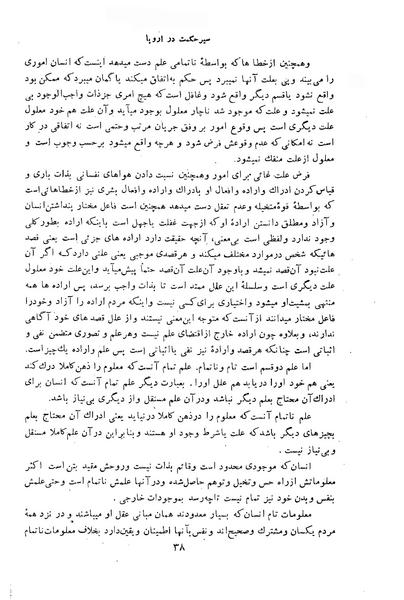 سیر حکمت در اروپا
وهمچنین ازخطا ها که بواسطهٔ ناتمامی علم دست میدهد اینست که انسان اموری
را می‌بیند وپی بعلت آنها نمیبرد پس حکم به‌اتفاق میکند یا گمان میبرد که ممکن بود
واقع نشود یا قسم دیگر واقع شود وغافل است که هیچ امری جزذات واجب‌الوجود بی
علت نمیشود و علت که موجود شد ناچار معلول بوجود میآید و آن علت هم خود معلول
علت دیگری است پس وقوع امور بر وفق جریان مرتب وحتمی است نه اتفاقی در کار
است نه امکانی که عدم وقوعش فرض شود و هرچه واقع میشود برحسب وجوب است و
معلول ازعلت منفک نمیشود.
فرض علت غائی برای امور وهمچنین نسبت دادن هواهای نفسانی بذات باری و
قیاس کردن ادراک واراده وافعال او بادراک واراده و افعال بشری نیز ازخطاهائی است
که بواسطهٔ قوهٔ متخیله وعدم تعقل دست میدهد همچنین است فاعل مختار پنداشتن‌انسان
وآزاد ومطلق دانستن ارادهٔ او که ازجهت غفلت یاجهل است باینکه اراده بطورکلی
وجود ندارد ولفظی است بی‌معنی، آنچه حقیقت دارد اراده های جزئی است یعنی قصد
هائیکه شخص درموارد مختلف میکند و هرقصدی موجبی یعنی علتی دارد که اگر آن
علت‌نبود آن‌قصد نمیشد و باوجود آن‌علت آن‌قصد حتماً پیش‌میآید و این‌علت خود معلول
علت دیگری است وسلسلهٔ این علل ممتد است تا بذات واجب برسد، پس اراده ها همه
منتهی بمشیت‌او میشود واختیاری برای کسی نیست و اینکه مردم اراده را آزاد وخودرا
فاعل مختار میدانند ازآنست که متوجه این‌معنی نیستند و از علل قصد های خود آگاهی
ندارند، وبعلاوه چون اراده خارج ازاقتضای علم نیست وهرعلم و تصوری متضمن نفی و
اثباتی است چنانکه هرقصد وارادهٔ نیز نفی یااثباتی است پس علم واراده یک‌چیزاست.
اما علم دوقسم است تام وناتمام. علم تمام آنست که معلوم را ذهن کاملا درک کند
یعنی هم خود اورا دریابد هم علل اورا. بعبارت دیگر علم تمام آنست که انسان برای
ادراک آن محتاج بعلم دیگر نباشد ودرآن علم مستقل و از دیگری بی‌نیاز باشد.
علم ناتمام آنست که معلوم را ذهن کاملا درنیابد یعنی ادراک آن محتاج بعلم
بچیزهای دیگری باشد که علت یاشرط وجود او هستند وبنابراین درآن علم کاملا مستقل
و بی‌نیاز نیست.
انسان‌که موجودی محدود است وقائم بذات نیست وروحش مقید بتن است اکثر
معلوماتش ازراه حس وتخیل وتوهم حاصل‌شده ودرآنها علمش ناتمام است وحتی‌علمش
بنفس وبدن خود نیز تمام نیست تاچه‌رسد بموجودات خارجی.
معلومات تام انسان که بسیار معدودند همان مبانی عقل او میباشند و در نزد همهٔ
مردم یکسان ومشترک وصحیح‌اند ونفس‌بآنها اطمینان ویقین‌دارد بخلاف معلومات‌ناتمام
۳۸